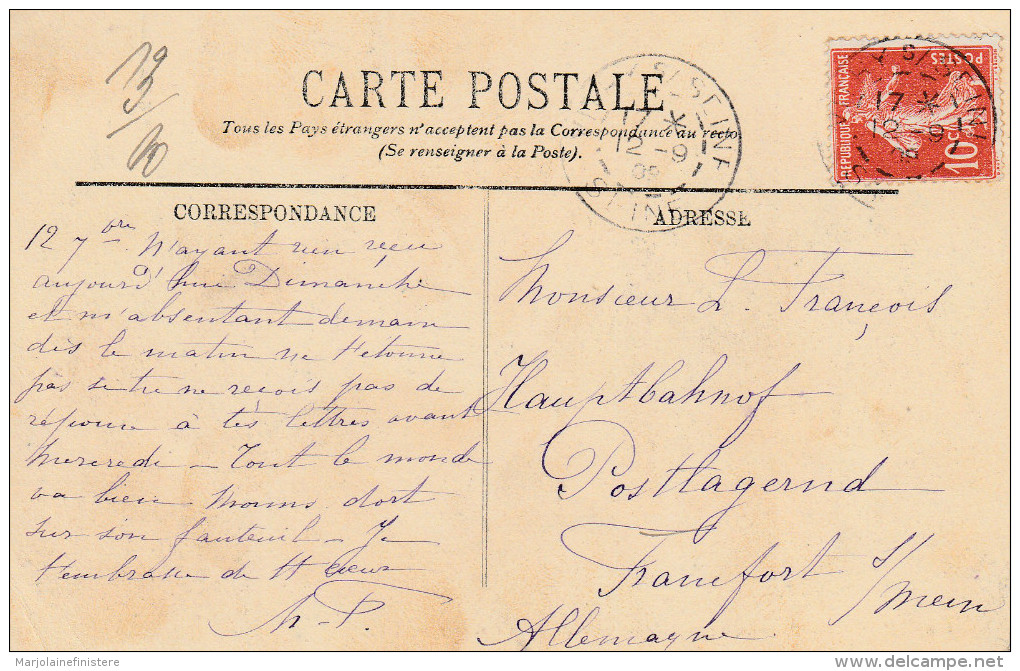 13/60
CARTE POSTALE
Tous les Pays étrangers n'acceptent pas la Correspondance au recto
(Se renseigner à la Poste).
CORRESPONDANCE
12 7bre N'ayant rien reçu
aujourd'hui Dimanche
et m'absentant demain
dès le matin ne t'etonne
pas si tu ne reçois pas de
réponse à tes lettres avant
Mercredi – Tout le monde
va bien Moms dort
sur son fauteuil – Je
t'embrasse de tt cœur
ADRESSE
Monsieur L. François
Hauptbahnof
Postlagernd
Francfort s/Mein
Allemagne
REPUBLIQUE FRANÇAISE
POSTES
10 C
S/SEINE
17 *
12 -9
SEINE
S/SEINE
17 *
12 -9
Marjolainefinistere
delcampe.net